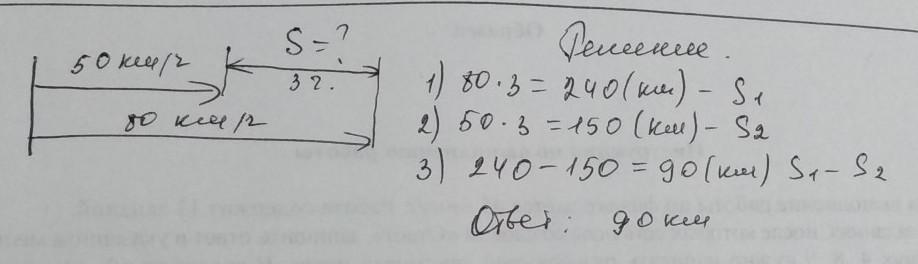 S = ?
50 км/ч
3 ч.
80 км/ч
Решение.
1) 80 · 3 = 240 (км) – S₁
2) 50 · 3 = 150 (км) – S₂
3) 240 – 150 = 90 (км) S₁ – S₂
Ответ: 90 км